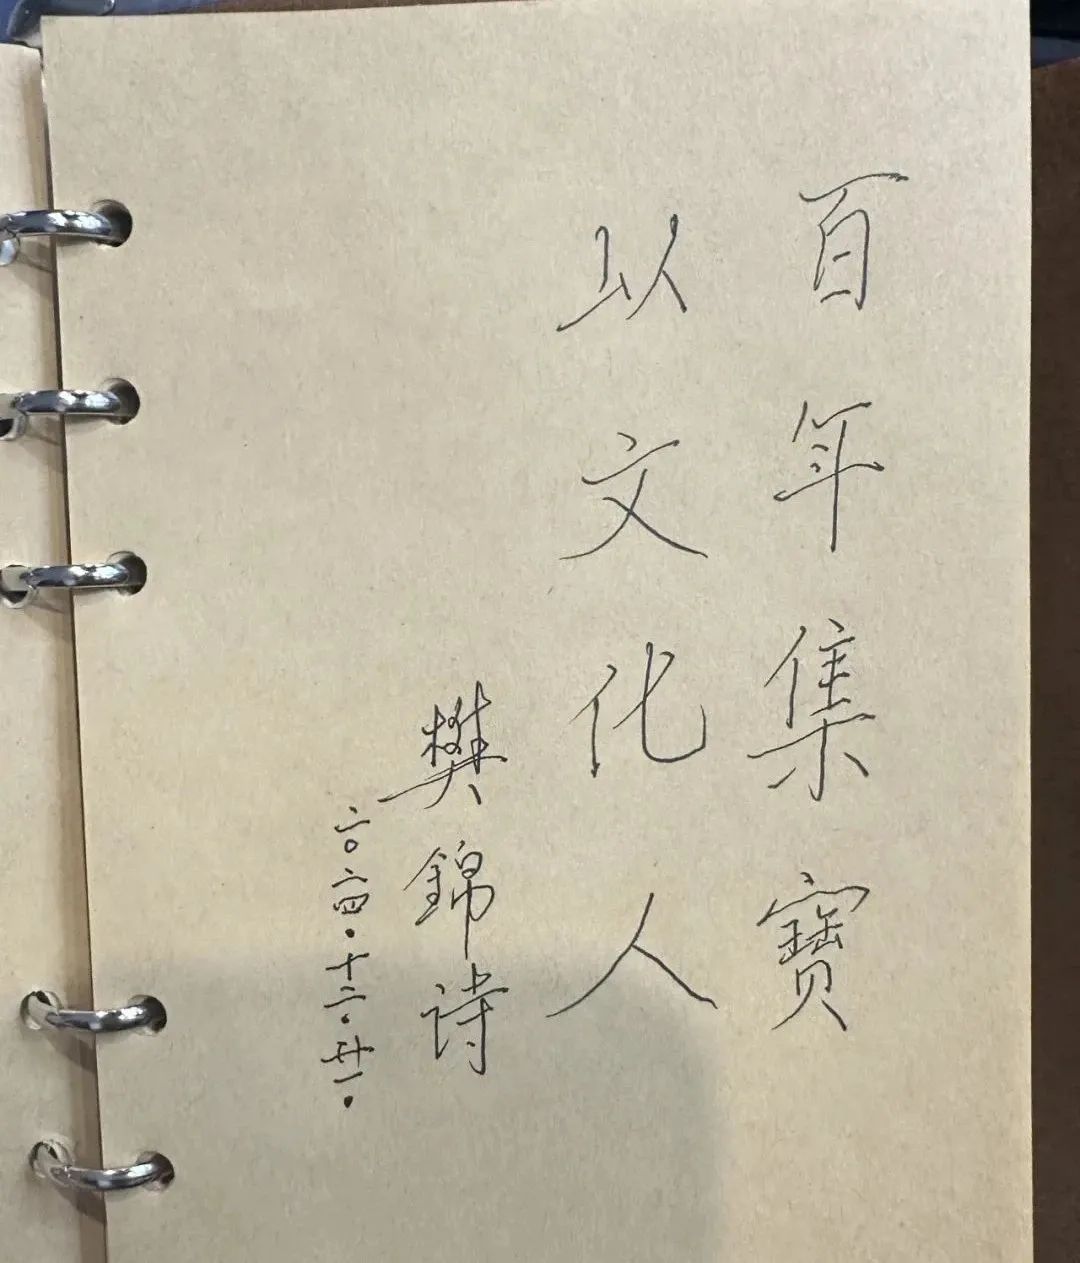 百年集寶
以文化人
樊錦诗
二〇二四·十二·廿一·